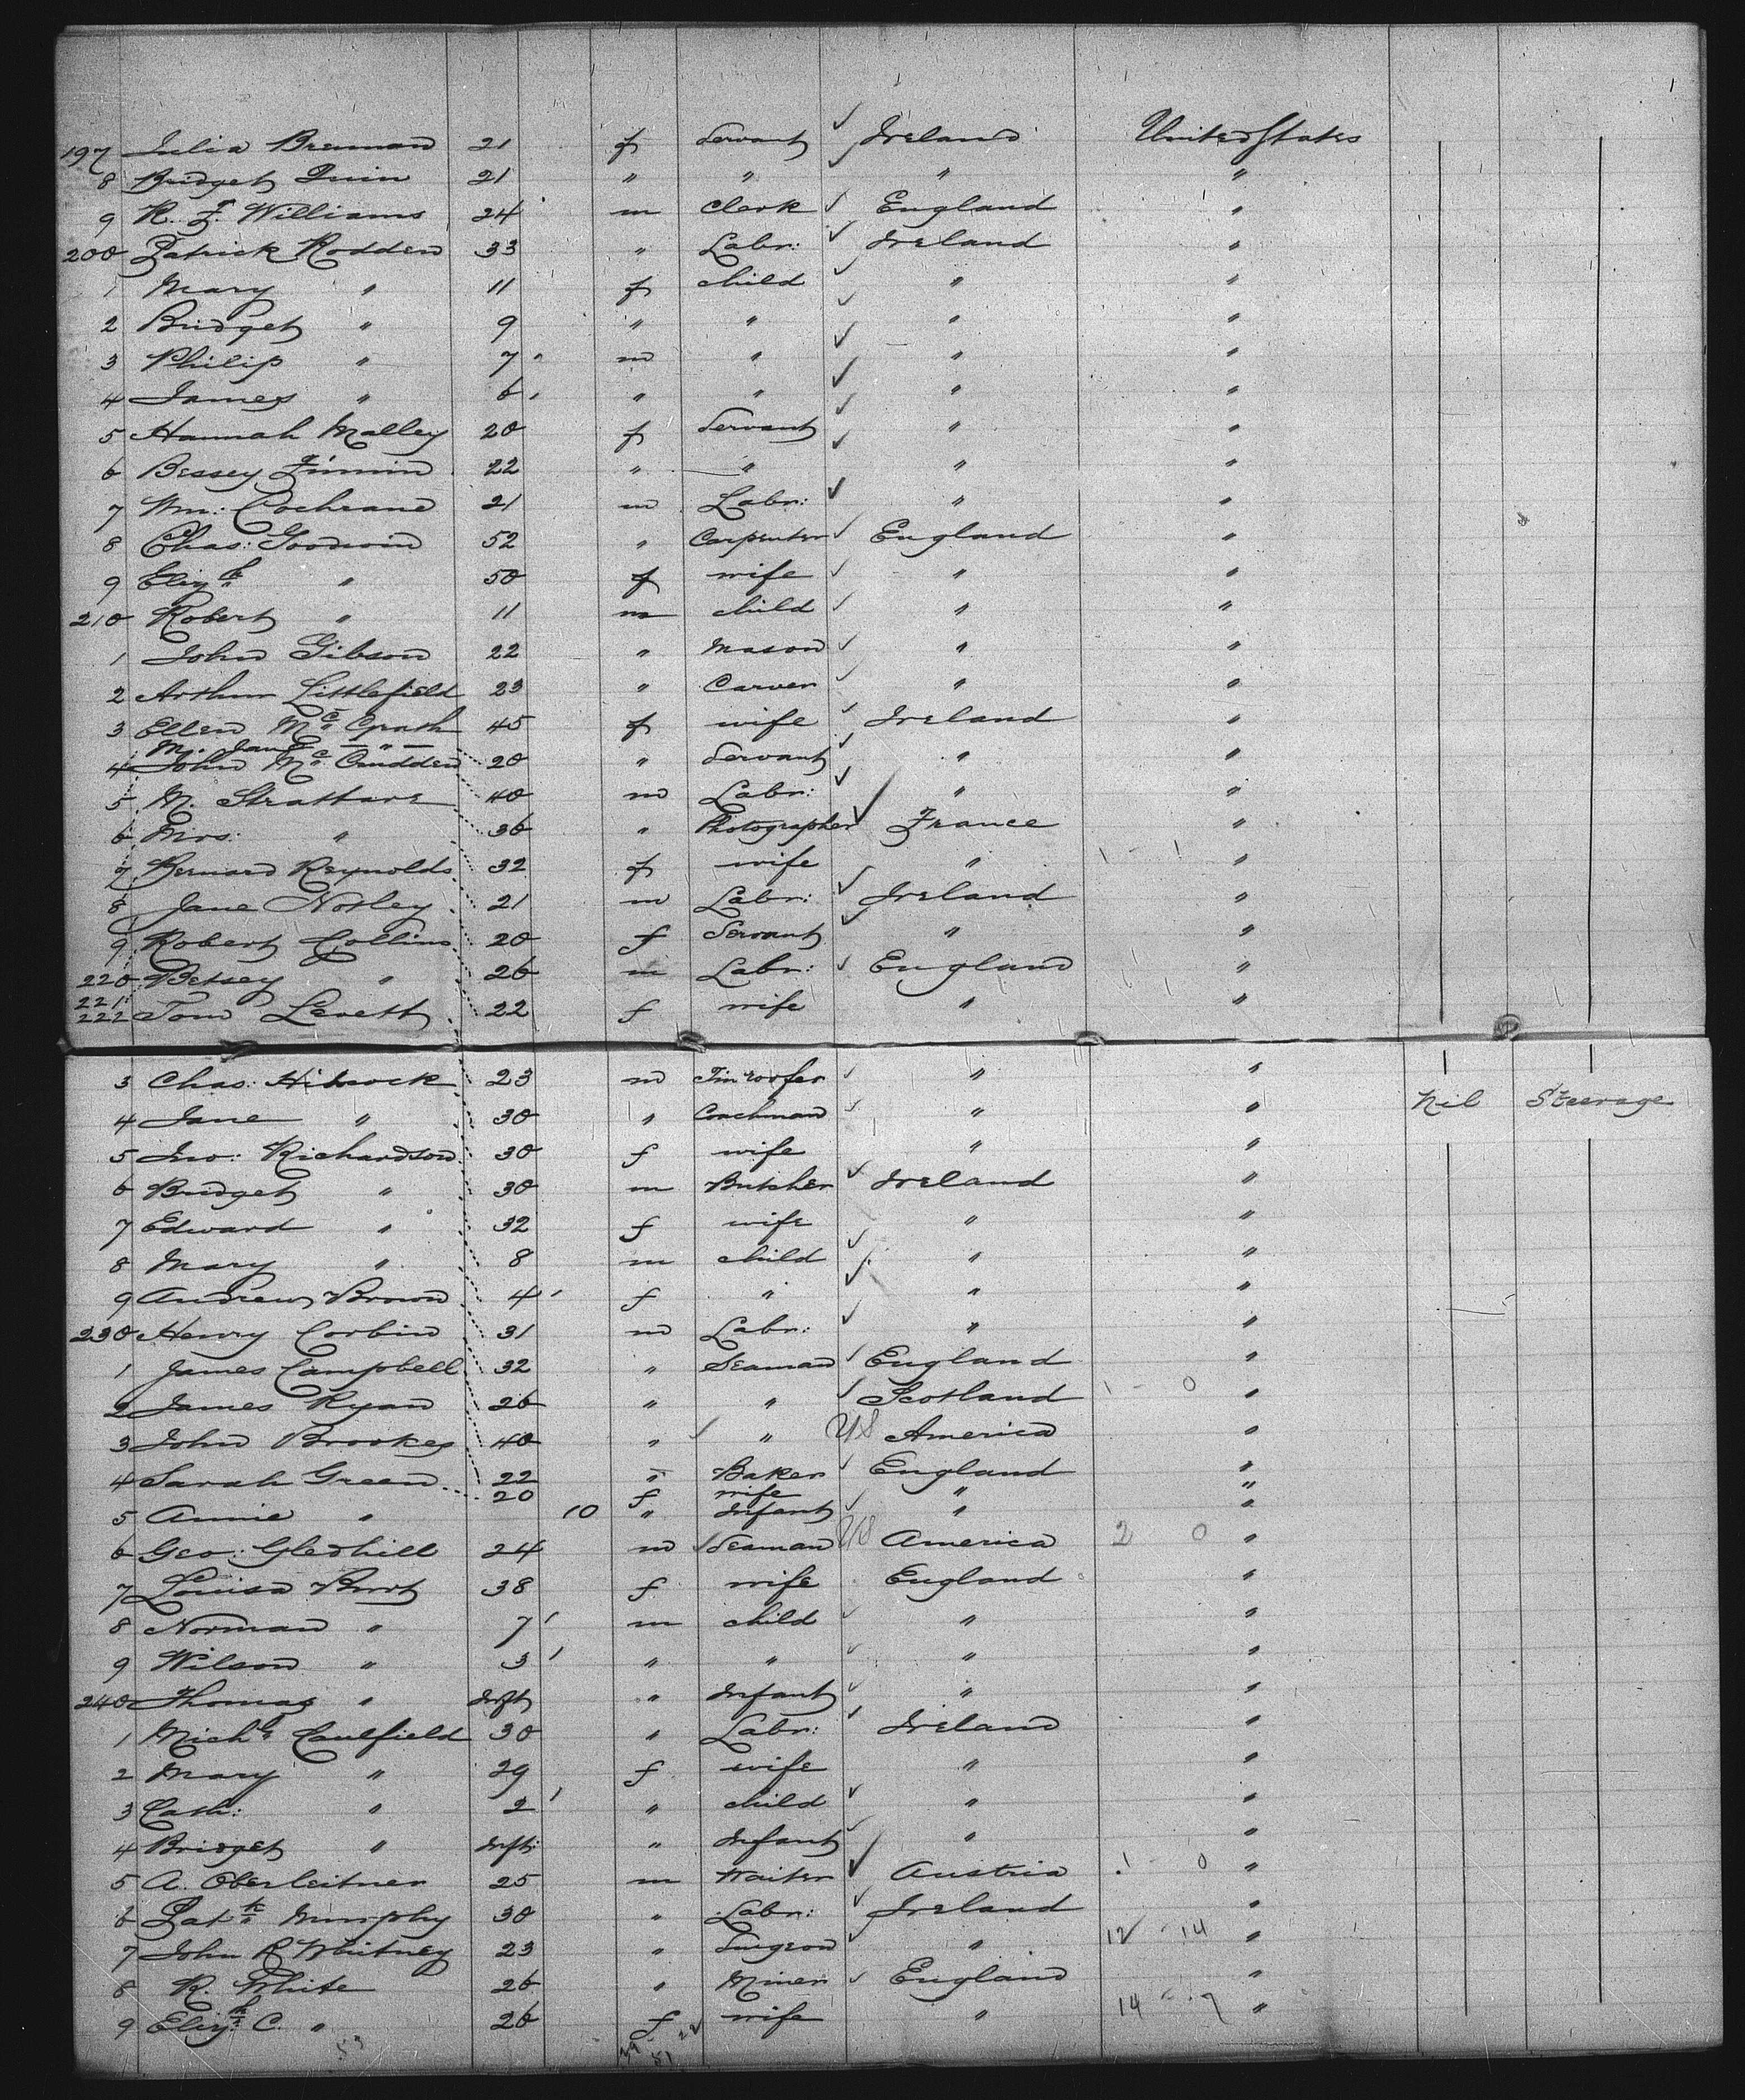 197 Julia Brennan 21 f Servant Ireland United States
8 Bridget Quin 21 " " " "
9 R. F. Williams 24 m Clerk England "
200 Patrick Rodden 33 " Labr: Ireland "
1 Mary " 11 f child " "
2 Bridget " 9 " " " "
3 Philip " 7 m " " "
4 James " 6 " " " "
5 Hannah Malley 20 f Servant " "
6 Bessey Finnin 22 " " " "
7 Wm: Cochrane 21 m Labr: " "
8 Chas: Goodwin 52 " Carpenter England "
9 Elizth " 50 f wife " "
210 Robert " 11 m child " "
1 John Gibson 22 " Mason " "
2 Arthur Littlefield 23 " Carver " "
3 Ellen McGrath 45 f wife Ireland "
My. Jane — " —
4 John McCrudden 20 " Servant " "
5 M. Strattare 40 m Labr: " "
6 Mrs: " 36 " Photographer France "
7 Bernard Reynolds 32 f wife " 1 - 1 "
8 Jane Notley 21 m Labr: Ireland "
9 Robert Collins 20 f Servant " "
220 Betsey " 26 m Labr: England "
221
222 Tom Levett 22 f wife " "
3 Chas: Hitcock 23 m Tin roofer " "
4 Jane " 30 " Coachman " " Nil Steerage
5 Jno: Richardson 30 f wife " "
6 Bridget " 30 m Butcher Ireland "
7 Edward " 32 f wife " "
8 Mary " 8 m child " "
9 Andrew Brown 4 f " " "
230 Henry Corbin 31 m Labr: " "
1 James Campbell 32 " Seaman England "
2 James Ryan 26 " " Scotland 1 - 0 "
3 John Brookes 40 " " US America "
4 Sarah Green 22 " Baker England "
20 f wife " "
5 Annie " 10 " Infant " "
6 Geo: Gledhill 24 m Seaman US America 2 0 "
7 Louisa 38 f wife England "
8 Norman " 7 m child " "
9 Wilson " 3 " " " "
240 Thomas " Inft " Infant " "
1 Michl Caulfield 30 " Labr: Ireland "
2 Mary " 29 f wife " "
3 Cath: " 2 " child " "
4 Bridget " Inft: " Infant " "
5 A. Oberleitner 25 m Waiter Austria 1 0 "
6 Patk Murphy 30 " Labr: Ireland "
7 John R Whitney 23 " Surgeon " 12 - 14 "
8 R. White 26 " Miner England "
9 Elizth C. " 26 f wife " 14 - 7 "
53 29 22
51